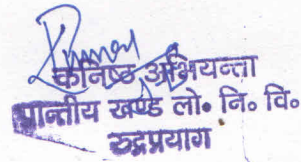 कनिष्ठ अभियन्ता
प्रान्तीय खण्ड लो॰ नि॰ वि॰
रुद्रप्रयाग